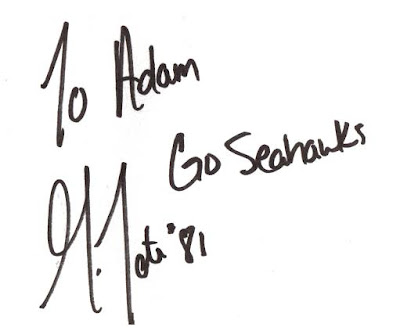 To Adam
Go Seahawks
G. Tate #81